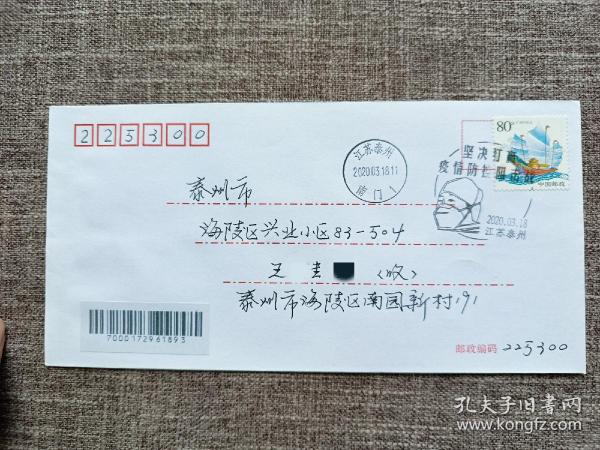 225300
泰州市
海陵区兴业小区83-504
王
(收)
泰州市海陵区南园新村191
邮政编码 225300
7000172961893
江苏泰州
2020.03.18.11
南门
80
中国邮政
坚决打赢
疫情防控阻击战
2020.03.18
江苏泰州
孔夫子旧书网
www.kongfz.com